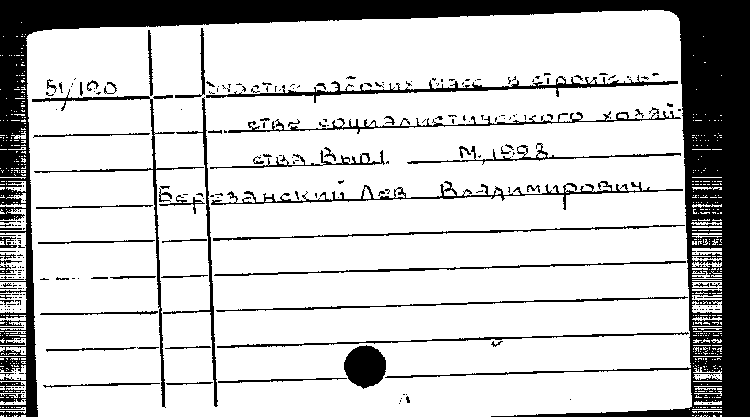 51/190 Участие рабочих масс в строитель-
стве социалистического хозяй-
ства. Вып.1. М., 1928.
Березанский Лев Владимирович.